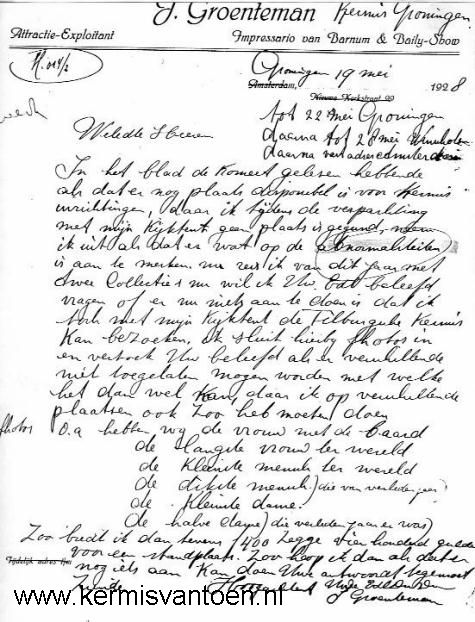 J. Groenteman Kermis Groningen
Attractie-Exploitant Impressario van Barnum & Baily-Show
Groningen 19 mei
Amsterdam, 1928
Nieuwe Kerkstraat 99
tot 22 mei Groningen
daarna tot 28 mei Winschoten
daarna
WelEdle Heeren
In het blad de Komeet gelezen hebbende
als dat er nog plaats disponibel is voor Kermis
inrichtingen, daar ik tijdens de verpachting
met mijn Kijktent geen plaats is gegund, neem
ik uit als dat er wat op de abnormaliteiten
is aan te merken. nu reis ik van dit jaar met
twee Collectie's nu wil ik Uw beleefd
vragen of er nu niets aan te doen is dat ik
toch met mijn Kijktent de Tilburgsche Kermis
Kan bezoeken, ik sluit hierbij photos in
en verzoek Uw beleefd als er verschillende
niet toegelaten mogen worden met welke
het dan wel Kan, daar ik op verschillende
plaatsen ook zoo heb moeten doen
photos o.a hebben wy de vrouw met de baard
de langste vrouw ter wereld
de Kleinste mensch ter wereld
de dikste mensch) die van verleden jaar)
de Kleinste dame.
de halve dame) die verleden jaar er was)
Zoo biedt ik dan tevens (400 zegge vier honderd gulden
voor een standplaats. Zoo hoop ik dan als dat er
Tijdelijk adres
nog iets aan Kan doen Uwe antwoordt tegemoet
J Groenteman
www.kermisvantoen.nl